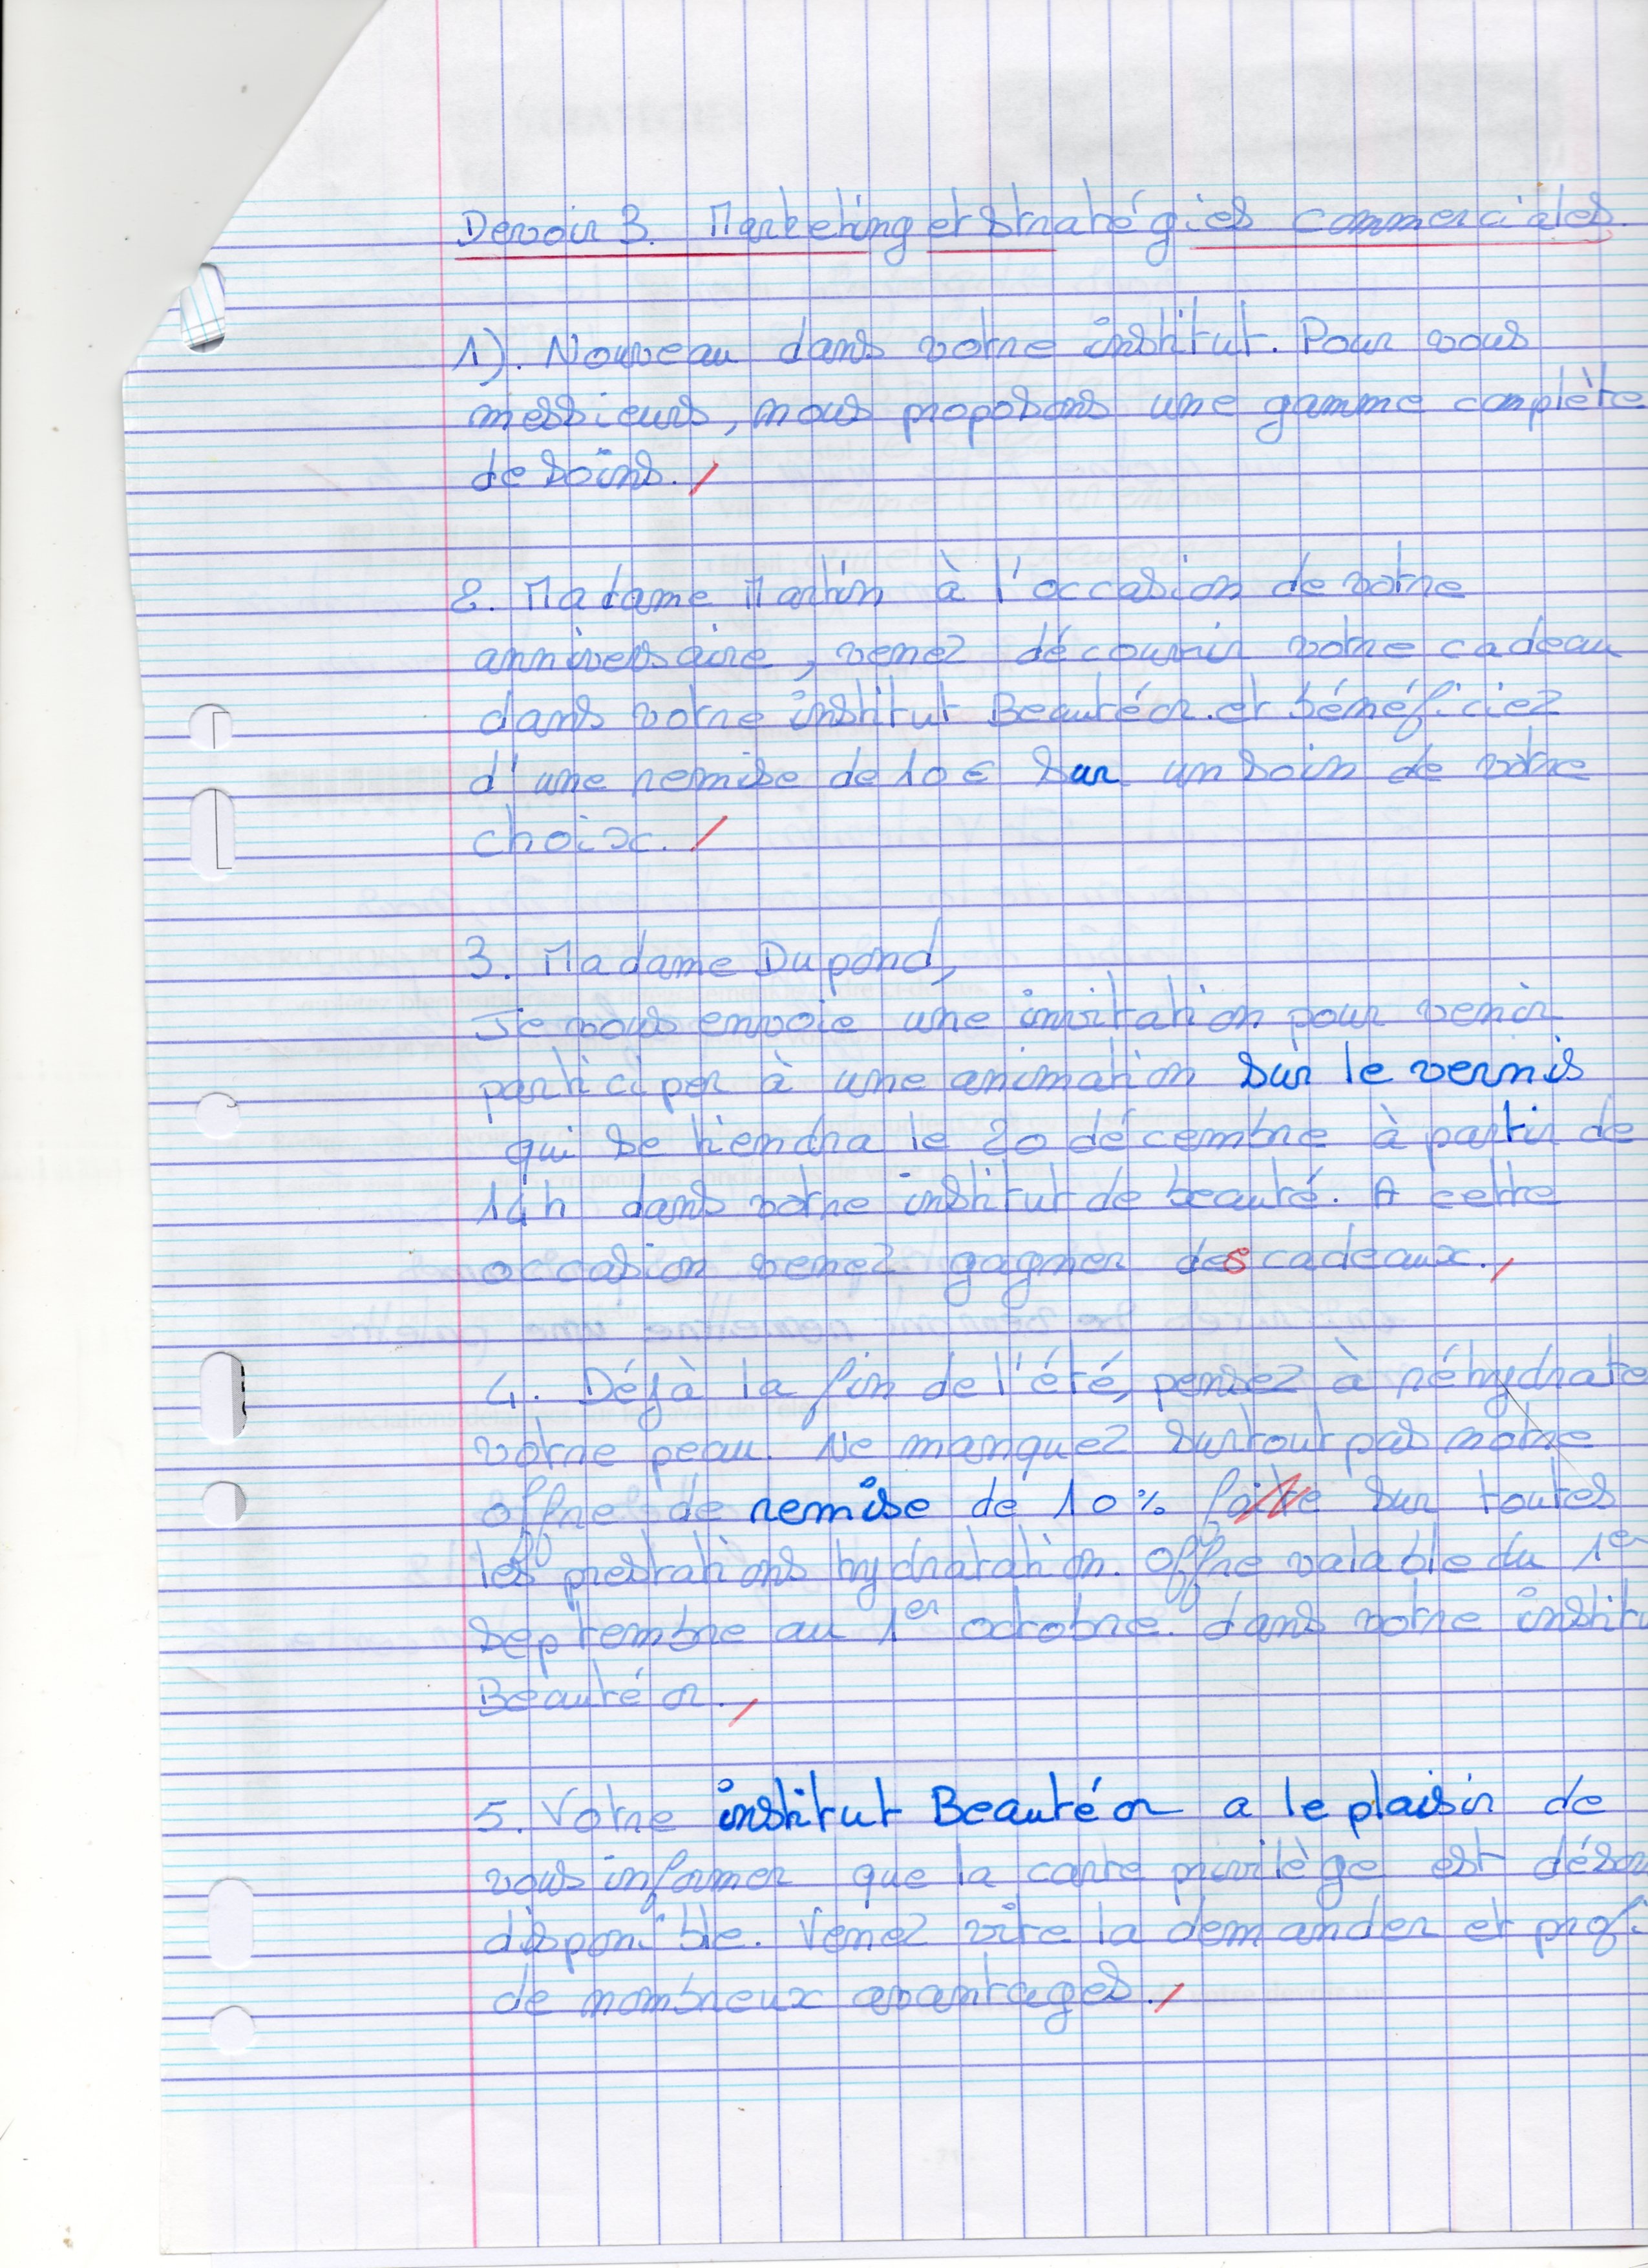 Devoir 3. Marketing et stratégies commerciales.
1). Nouveau dans votre institut. Pour vous
messieurs, nous proposons une gamme complète
de soins.
2. Madame Martin à l'occasion de votre
anniversaire, venez découvrir votre cadeau
dans votre institut Beautéor. et bénéficiez
d'une remise de 10 € sur un soin de votre
choix.
3. Madame Dupond,
Je vous envoie une invitation pour venir
participer à une animation sur le vernis
qui se tiendra le 20 décembre à partir de
14h dans votre institut de beauté. A cette
occasion venez gagner des cadeaux.
4. Déjà la fin de l'été, pensez à réhydrate
votre peau. Ne manquez surtout pas notre
offre de remise de 10% faite sur toutes
les prestations hydratation. Offre valable du 1er
septembre au 1er octobre. dans votre institu
Beautéor.
5. Votre institut Beautéor a le plaisir de
vous informer que la carte privilège est déso
disponible. Venez vite la demander et profi
de nombreux avantages.